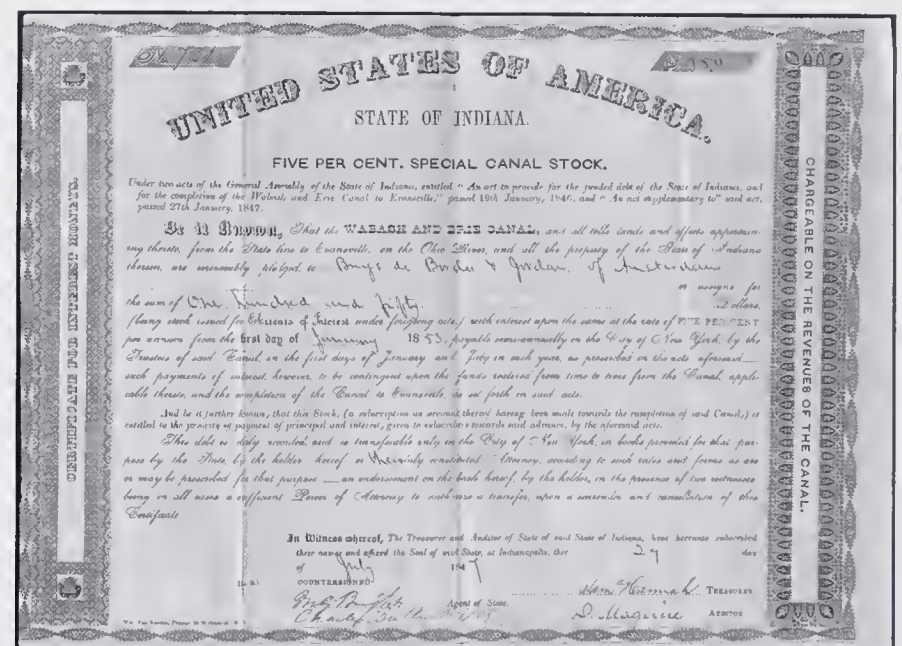 UNITED STATES OF AMERICA.
STATE OF INDIANA.
FIVE PER CENT. SPECIAL CANAL STOCK.
Under two acts of the General Assembly of the State of Indiana, entitled "An act to provide for the funded debt of the State of Indiana, and
for the completion of the Wabash and Erie Canal to Evansville," passed 19th January, 1846, and "An act supplementary to" said act,
passed 27th January, 1847.
Be it Known, That the WABASH AND ERIE CANAL, and all tolls lands and effects appertain-
ing thereto, from the State line to Evansville, on the Ohio River, and all the property of the State of Indiana
therein, are irrevocably pledged to Buys de Bordes & Jordan of Amsterdam
or assigns for
the sum of One hundred and fifty Dollars,
(being stock issued for Arrears of Interest under foregoing acts,) with interest upon the same at the rate of FIVE PER CENT
per annum from the first day of January 1853, payable semi-annually in the City of New York, by the
Trustees of said Canal, on the first days of January and July in each year, as prescribed in the acts aforesaid—
such payments of interest, however, to be contingent upon the funds realized from time to time from the Canal, appli-
cable thereto, and the completion of the Canal to Evansville, as set forth in said acts.
And be it further known, that this Stock, (a subscription on account thereof having been made towards the completion of said Canal,) is
entitled to the priority of payment of principal and interest, given to subscribers towards said advance, by the aforesaid acts.
This debt is duly recorded, and is transferable only in the City of New York, in books provided for that pur-
pose by the State, by the holder hereof or constituted Attorney, according to such rules and forms as are
or may be prescribed for that purpose — an endorsement on the back hereof, by the holder, in the presence of two witnesses
being in all cases a sufficient Power of Attorney to authorize a transfer, upon a surrender and cancellation of this
Certificate
In Witness whereof, The Treasurer and Auditor of State of said State of Indiana, have hereunto subscribed
their names and affixed the Seal of said State, at Indianapolis, this 29 day
of July 1847
(L.S.) COUNTERSIGNED
Saml Hannah TREASURER
Agent of State.
D. Maguire AUDITOR
CERTIFICATE FOR INTEREST MONEYS.
CHARGEABLE ON THE REVENUES OF THE CANAL.